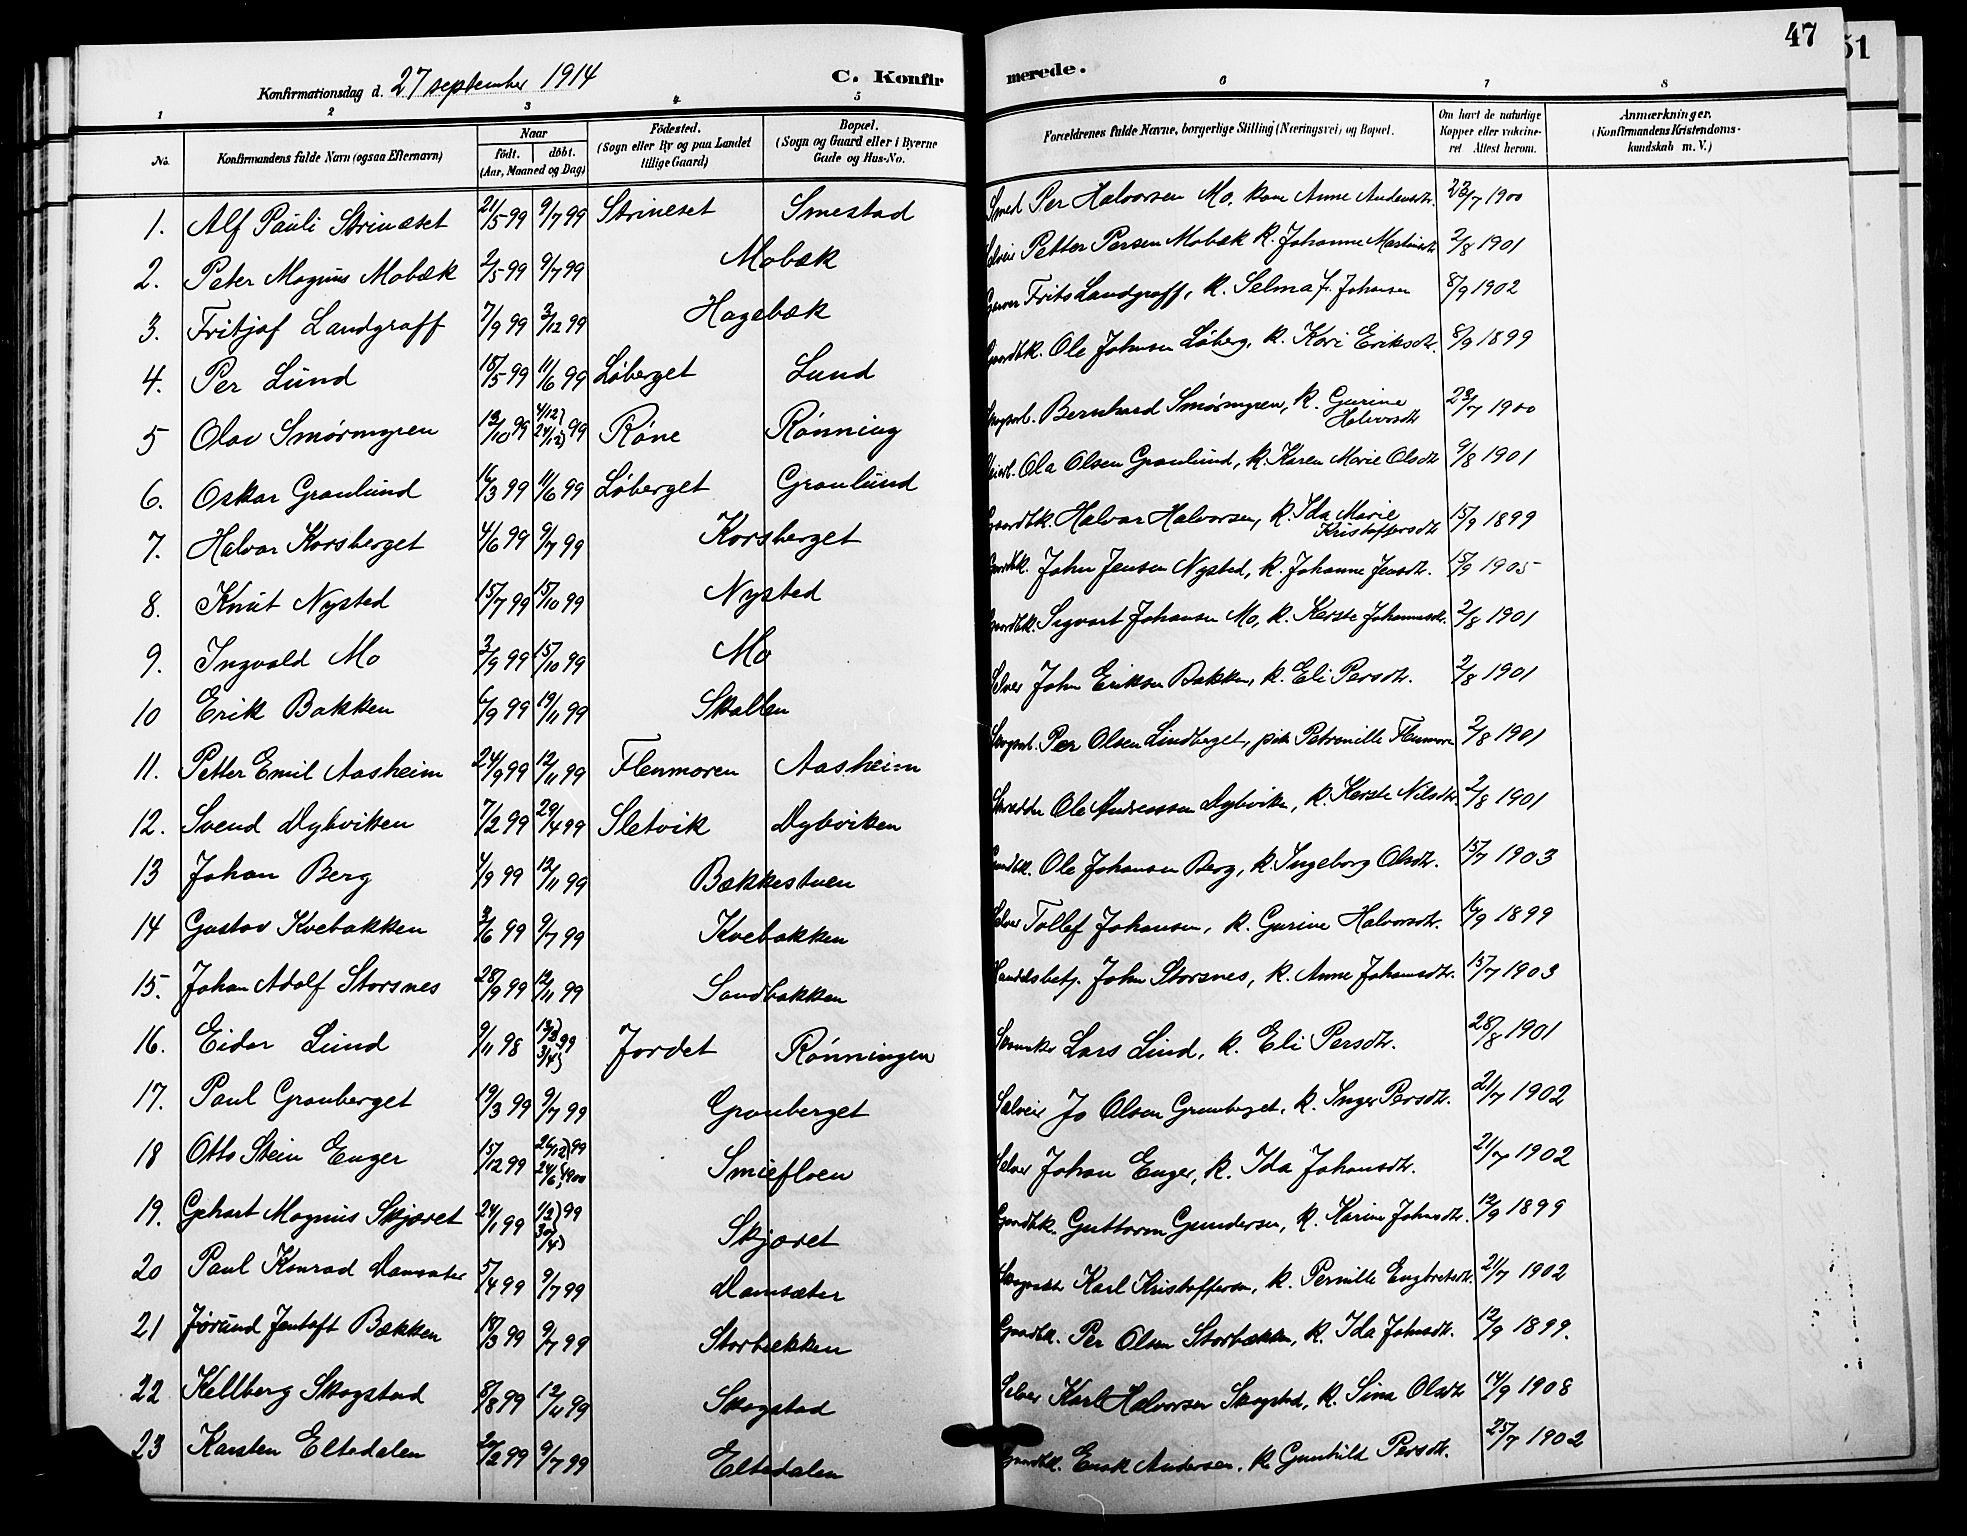 47
51
Konfirmationsdag d. 27 september 1914
C. Konfirmerede.
1 2 3 4 5 6 7 8
No. Konfirmandens fulde Navn (ogsaa Efternavn) Naar født. døbt. (Aar, Maaned og Dag) Fødested. (Sogn eller By og paa Landet tillige Gaard) Bopæl. (Sogn og Gaard eller i Byerne Gade og Hus-No. Forældrenes fulde Navne, borgerlige Stilling (Næringsvei) og Bopæl. Om havt de naturlige Kopper eller vaccineret Attest herom. Anmærkninger. (Konfirmandens Kristendomskundskab m. V.)
1. Alf Pauli Strinæset 21/5 99 9/7 99 Strineset Smestad Smed Per Halvorsen Mo, kone Anne Andersdtr. 23/7 1900
2. Peter Magnus Mobæk 2/5 99 9/7 99 Mobæk Petter Persen Mobæk k. Johanne Martinsdtr 2/8 1901
3. Fritjof Landgraff 7/9 99 3/12 99 Hagebæk Frits Landgraff, k. Selma f. Johansen 8/9 1902
4. Per Lund 18/5 99 11/6 99 Løberget Lund Gaardbk. Ole Johnsen Løberg, k. Kari Eriksdtr. 8/9 1899
5 Olav Smørmyren 12/10 99 4/12) 24/12) 99 Røne Rønning Bernhard Smørmyren, k. Gurine Halvorsdtr 23/7 1900
6. Oskar Granlund 16/3 99 11/6 99 Løberget Granlund Ola Olsen Granlund, k. Karen Marie Olsdtr 9/8 1901
7. Halvor Korsberget 4/6 99 9/7 99 Korsberget Gaardbk. Halvor Halvorsen, k. Ida Marie Kristoffersdtr 15/9 1899
8. Knut Nysted 15/7 99 15/10 99 Nysted Gaardbk. John Jensen Nysted, k. Johanne Jensdtr. 15/9 1905
9. Ingvald Mo 3/9 99 15/10 99 Mo Gaardbk. Sigvart Johansen Mo, k. Kerste Johannesdtr. 2/8 1901
10 Erik Bakken 6/9 99 19/11 99 Skallen Selveier John Eriksen Bakken, k. Eli Persdtr. 2/8 1901
11. Petter Emil Aasheim 24/9 99 12/11 99 Flenmoren Aasheim Per Olsen Lindberget, pike Petronille Flenmoren 2/8 1901
12. Svend Dybviken 7/2 99 29/4 99 Sletvik Dybviken Skrædder Ole Andreassen Dybviken, k. Kerste Nilsdtr. 2/8 1901
13 Johan Berg 4/9 99 12/11 99 Bækkestuen Gaardbk. Ole Johansen Berg, k. Ingeborg Olsdtr. 15/7 1903
14 Gustav Kvebakken 3/6 99 9/7 99 Kvebakken Selveier Tollef Johansen, k. Gurine Halvorsdtr. 16/9 1899
15. Johan Adolf Storsnes 28/9 99 12/11 99 Sandbakken Handelsbetj. John Storsnes, k. Anne Johansdtr. 15/7 1903
16. Eidar Lund 9/11 98 12/3) 3/4) 99 Jordet Rønningen Snekker Lars Lund, k. Eli Persdtr. 28/8 1901
17. Paul Granberget 19/3 99 9/7 99 Granberget Selveier Jo Olsen Granberget, k. Inger Persdtr. 21/7 1902
18 Otto Stein Enger 15/12 99 26/12) 99 24/6) 1900 Smiefloen Selveier Johan Enger, k. Ida Johansdtr. 21/7 1902
19. Gehart Magnus Skjæret 24/1 99 1/3) 99 30/4) Skjæret Gaardbk. Guttorm Gundersen, k. Karine Johnsdtr. 12/9 1899
20 Paul Konrad Damsæter 5/4 99 9/7 99 Damsæter Karl Kristoffersen, k. Pernille Engbretsdtr. 21/7 1902
21 Jørund Jentoft Bækken 18/3 99 9/7 99 Storbækken Gaardbk. Per Olsen Storbækken, k. Ida Johnsdtr. 12/9 1899.
22 Kellberg Skogstad 8/8 99 12/11 99 Skogstad Selveier Karl Halvorsen Skogstad, k. Sina Olsdtr 14/9 1908
23 Karsten Eltedalen 27/2 99 9/7 99 Eltedalen Gaardbk. Enok Andersen, k. Gunhild Persdtr. 25/7 1902